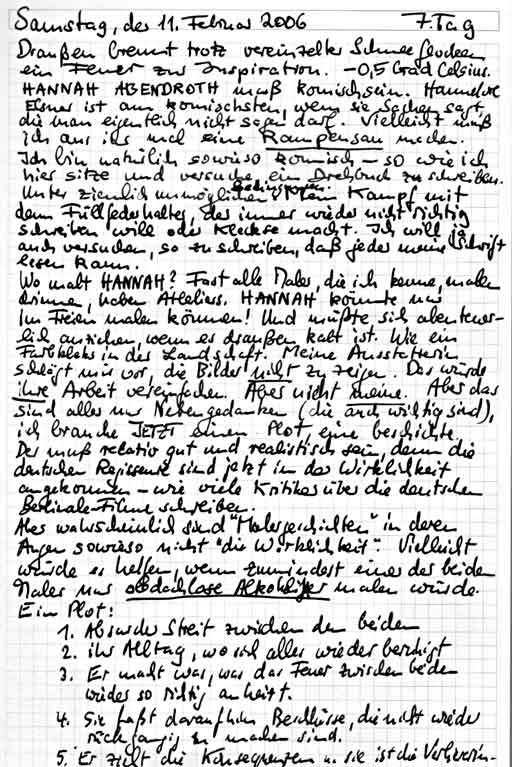 Samstag, der 11. Februar 2006 7. Tag
Draußen brennt trotz vereinzelter Schneeflocken
ein Feuer zur Inspiration. -0,5 Grad Celsius.
HANNAH ABENDROTH muß komisch sein. Hannelore
Elsner ist am komischsten, wenn sie Sachen sagt,
die man eigentlich nicht sagen darf. Vielleicht muß
ich aus ihr mal eine Rampensau machen.
Ich bin natürlich sowieso komisch – so wie ich
hier sitze und versuche, ein Drehbuch zu schreiben.
Unter ziemlich unmöglichen Bedingungen. Mein Kampf mit
dem Füllfederhalter, der immer wieder nicht richtig
schreiben will oder Kleckse macht. Ich will ja
auch versuchen, so zu schreiben, daß jeder meine Schrift
lesen kann.
Wo malt HANNAH? Fast alle Maler, die ich kenne, malen
drinne, haben Ateliers. HANNAH könnte nur
im Freien malen können! Und müßte sich abenteuer-
lich anziehen, wenn es draußen kalt ist. Wie ein
Farbklecks in der Landschaft. Meine Ausstatterin
schlägt mir vor, die Bilder nicht zu zeigen. Das würde
ihre Arbeit vereinfachen. Aber nicht meine. Aber das
sind alles nur Nebengedanken (die auch wichtig sind),
ich brauche JETZT einen Plot, eine Geschichte.
Der muß relativ gut und realistisch sein, denn die
deutschen Regisseure sind jetzt in der Wirklichkeit
angekommen – wie viele Kritiker über die deutschen
Berlinale-Filme schreiben.
Aber wahrscheinlich sind "Malergeschichten" in deren
Augen sowieso nicht "die Wirklichkeit". Vielleicht
würde es helfen, wenn zumindest einer der beiden
Maler nur obdachlose Alkoholiker malen würde.
Ein Plot:
1. Absurder Streit zwischen den beiden
2. ihr Alltag, wo sich alles wieder beruhigt
3. Er macht was, was das Feuer zwischen beiden
wieder so richtig anheizt.
4. Sie faßt daraufhin Beschlüsse, die nicht wieder
rückgängig zu machen sind.
5. Er zieht die Konsequenzen u. sie ist die